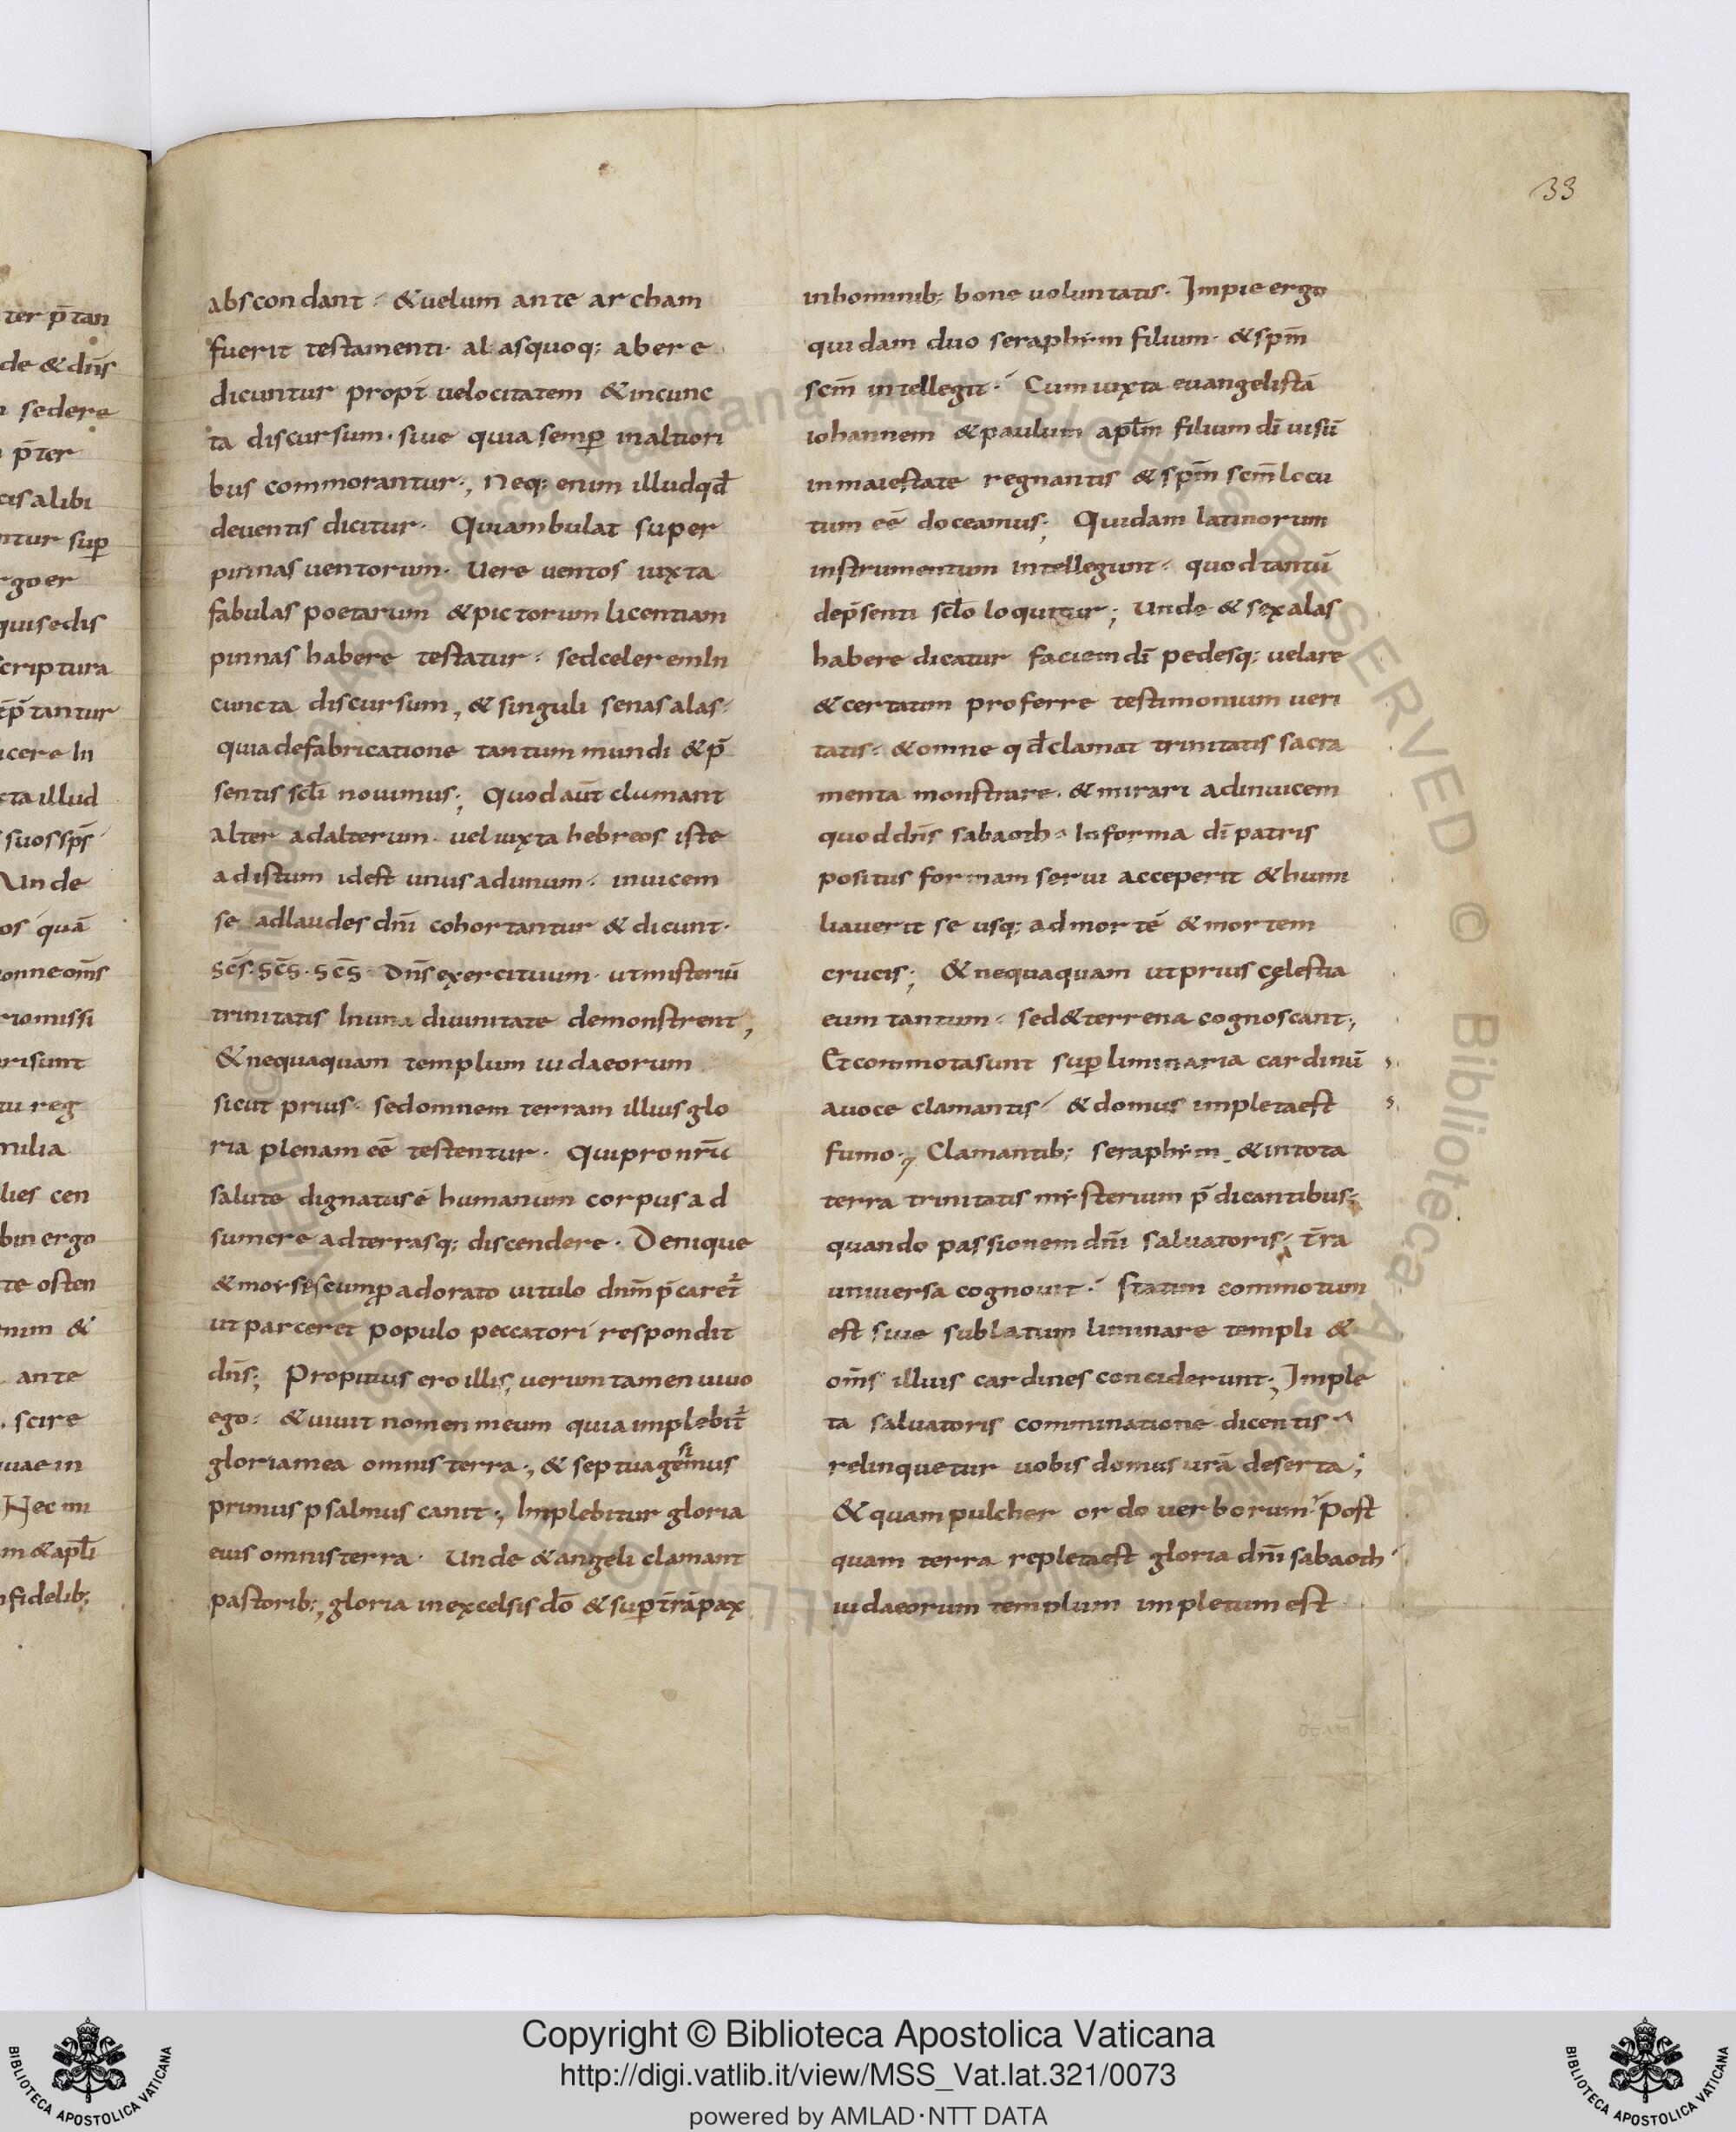 33
ter p̄tan
de & dn̄s
sedere
p̄ter
cis alibi
ntur sup̄
rgo er
qui sedis
scriptura
tp̄tantur
icere In
cta illud
suos sp̄s
Unde
os quā
onne om̄s
riomissi
risunt
tu reg
milia
lies cen
bin ergo
te osten
nim &
ante
scire
uae in
Nec mi
m & apl̄i
nfidelib;
abscondant· & uelum ante archam
fuerit testamenti· alasquoq; abere
dicuntur propt̄ uelocitatem & incunc
ta discursum· siue quia semp̄ inaltiori
bus commorantur·, Neq; enim illud qd̄
deuentis dicitur· Qui ambulat super
pinnas uentorum· Uere uentos iuxta
fabulas poetarum & pictorum licentiam
pinnas habere testatur· sed celerem In
cuncta discursum, & singuli senas alas·
quia defabricatione tantum mundi & p̄
sentis scl̄i nouimus; Quod aūt clamant
alter ad alterum· uel iuxta hebreos iste
ad istum idest unus ad unum· inuicem
se ad laudes dn̄i cohortantur & dicunt·
sc̄s· sc̄s· sc̄s· dn̄s exercituum· ut misteriū
trinitatis In una diuinitate demonstrent,
& nequaquam templum iudaeorum
sicut prius· sed omnem terram illius glo
ria plenam eē testentur· Qui pro nr̄a
salute dignatus ē humanum corpus ad
sumere ad terrasq; discendere· Denique
& morses cum p adorato uitulo dn̄m p̄caret̄
ut parceret populo peccatori respondit
dn̄s; Propitius ero illis, uerum tamen uiuo
ego· & uiuit nomen meum quia implebit̄
gloria mea omnis terra·, & septuagesimus
primus psalmus canit·, Implebitur gloria
eius omnis terra· Unde & angeli clamant
pastorib;, gloria in excelsis do̅ & sup̄ t̄rā pax
in hominib; bone uoluntatis· Impie ergo
quidam duo seraphim filium· & sp̄m
sc̄m intellegit· Cum iuxta euangelistā
iohannem & paulum apl̄m filium dī uisū
in maiestate regnantis & sp̄m sc̄m locu
tum eē doceamus; Quidam latinorum
instrumentum intellegunt· quod tantū
dep̄senti scl̄o loquitur; Unde & sex alas
habere dicatur faciem dī pedesq; uelare
& certatim proferre testimonium ueri
tatis· & omne qd̄ clamat trinitatis sacra
menta monstrare· & mirari ad inuicem
quod dn̄s sabaoth· In forma dī patris
positus formam serui acceperit & humi
liauerit se usq; ad mortē & mortem
crucis; & nequaquam ut prius cęlestia
eum tantum· sed & terrena cognoscant·,
Et commota sunt sup̄ luminaria cardinū
auoce clamantis & domus impleta est
fumo·, Clamantib; seraphim & in tota
terra trinitatis misterium p̄dicantibus·
quando passionem dn̄i saluatoris· t̄ra
uniuersa cognouit· statim commotum
est siue sublatum liminare templi &
om̄s illius cardines conciderunt·, Imple
ta saluatoris comminatione dicentis·
relinquetur uobis domus urā deserta;
& quam pulcher ordo uerborum· Post
quam terra repleta est gloria dn̄i sabaoth
iudaeorum templum impletum est
Copyright © Biblioteca Apostolica Vaticana
http://digi.vatlib.it/view/MSS_Vat.lat.321/0073
powered by AMLAD·NTT DATA
BIBLIOTECA APOSTOLICA VATICANA
BIBLIOTECA APOSTOLICA VATICANA